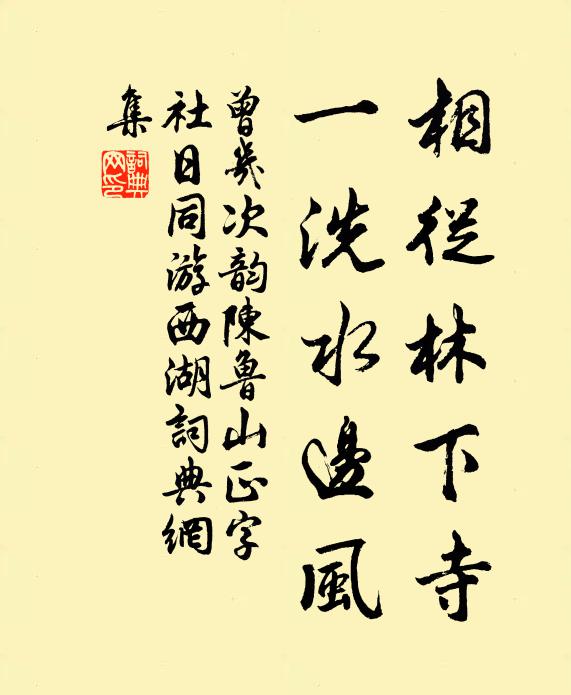 相從林下寺
一洗水邊風
曾幾次韵陳魯山正字
社日同游西湖詞典網
集
詞典
网印